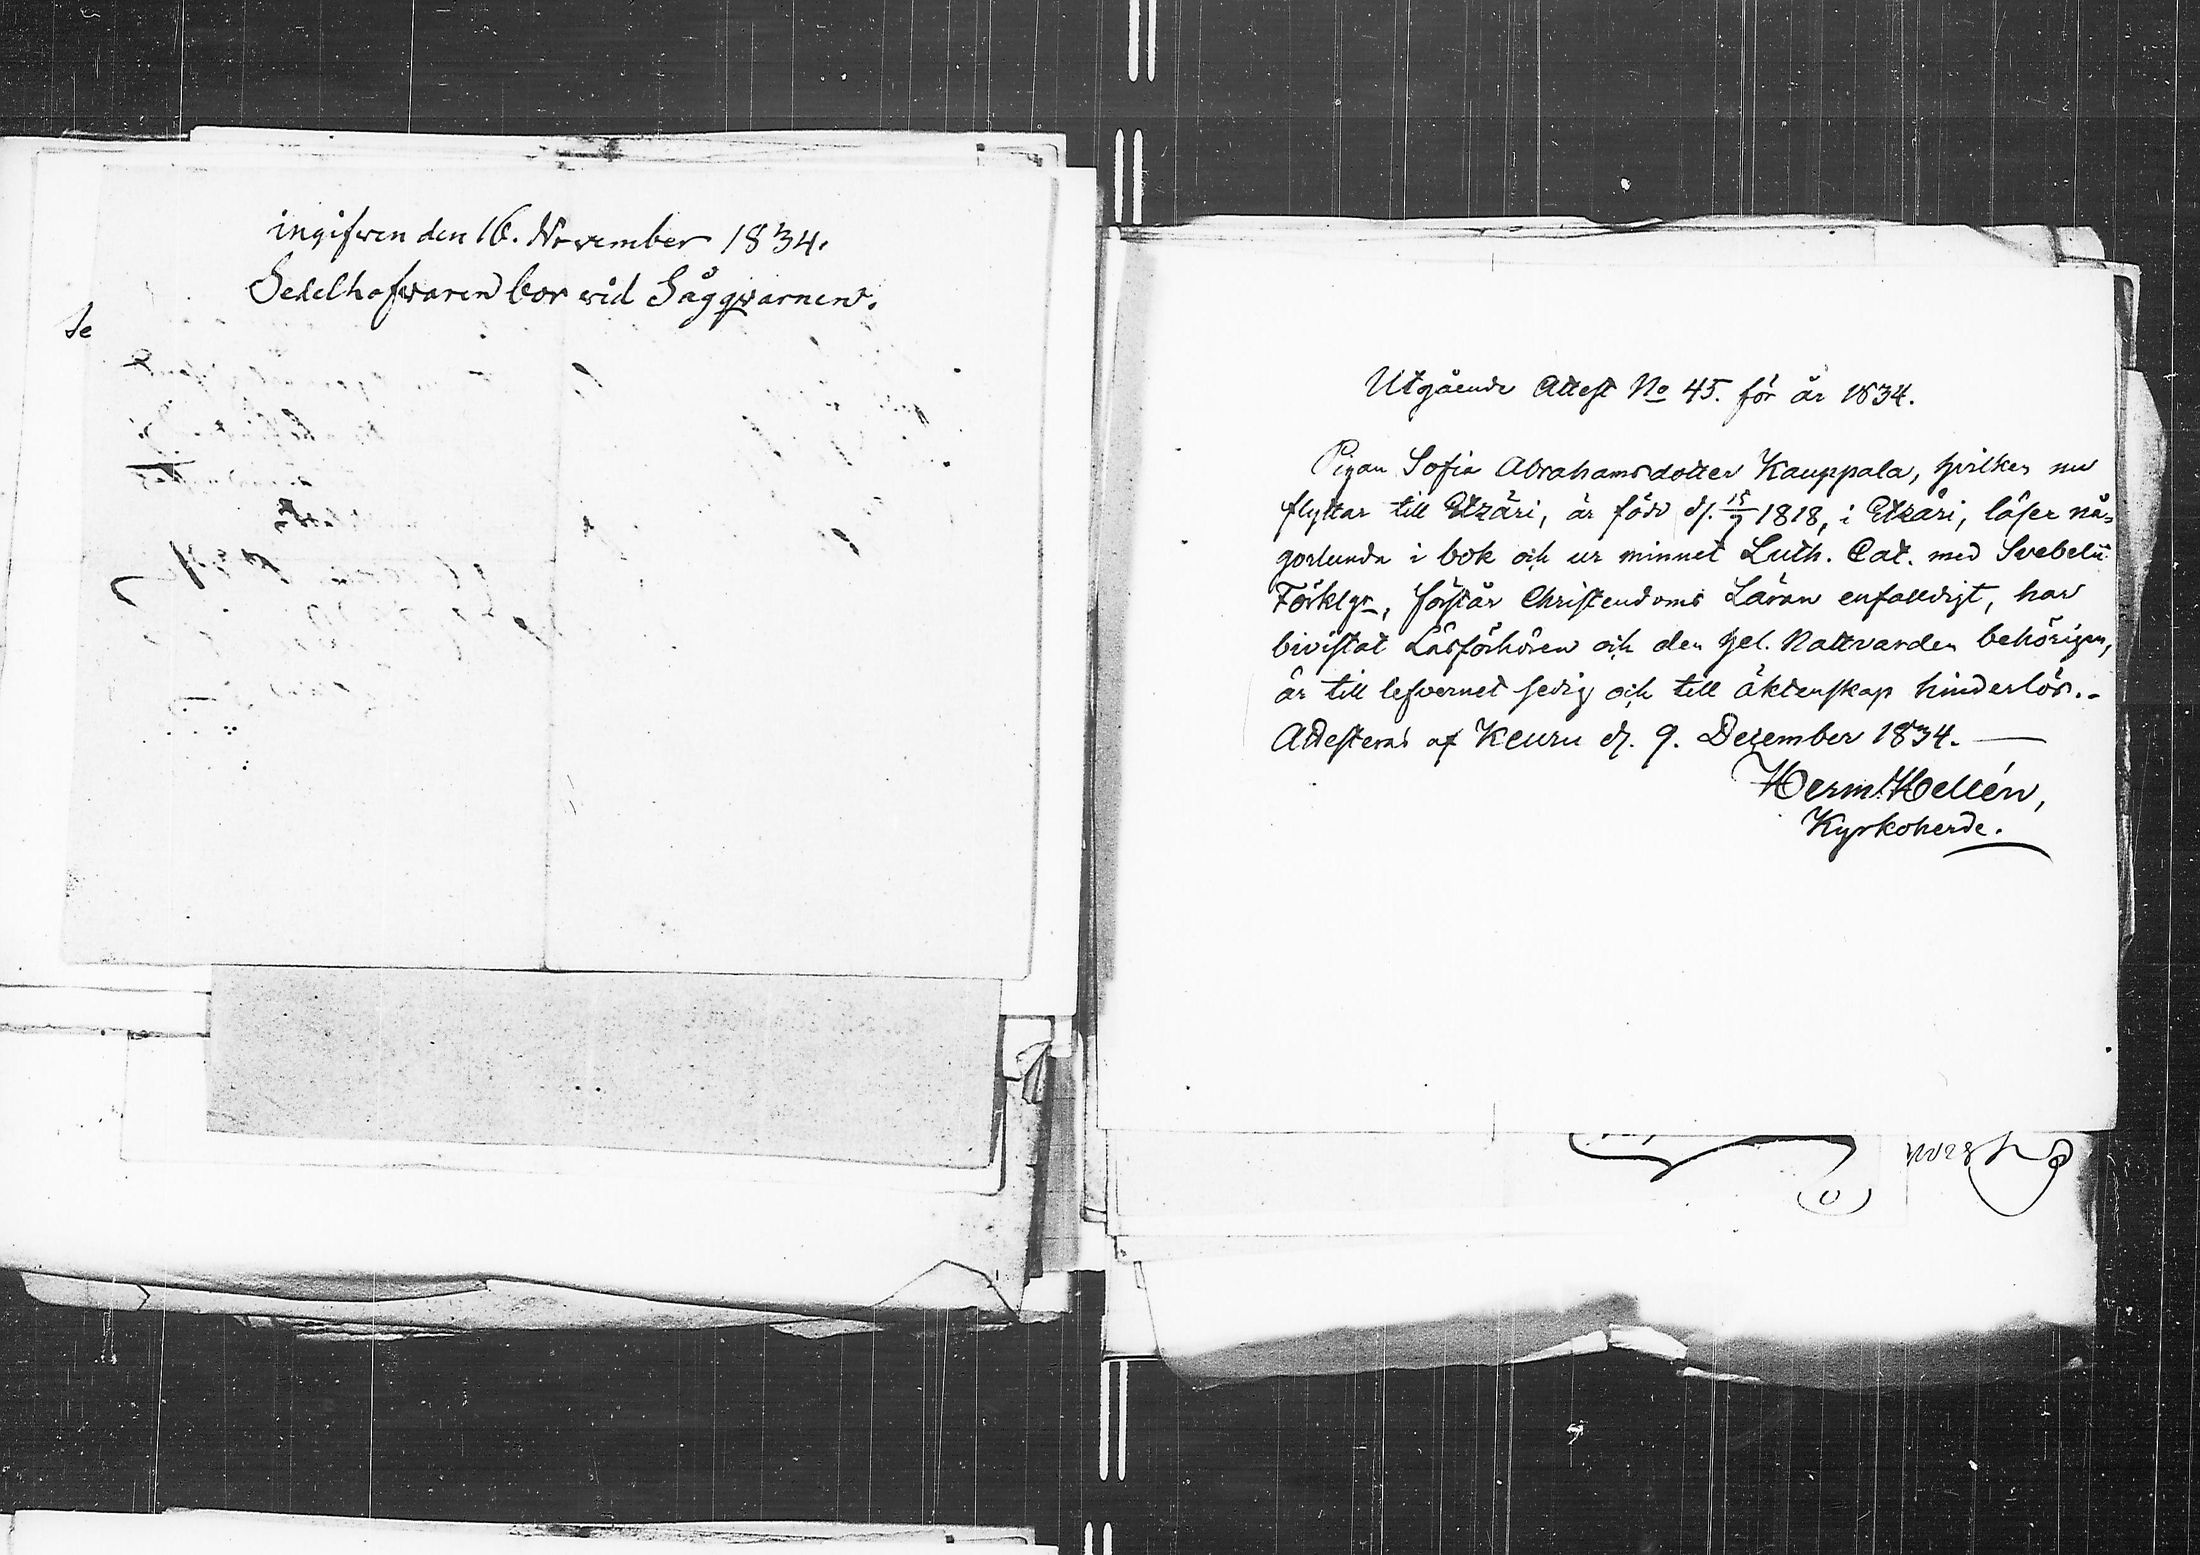 ingifwen den 16. November 1834.
Sedelhafwaren bor wid Sågqwarnen.
se
Utgående Attest No 45. för år 1834.
Pigan Sofia Abrahamsdotter Kauppala, hvilken nu
flyttar till Etzäri, är född d. 15/7 1818, i Etzäri, läser nå=
gorlunda i bok och ur minnet Luth. Cat. med Svebelii
Förklgr, förstår Christendoms Läran enfalldigt, har
bivistat Läsförhören och den hel. Nattvarden behörigen,
är till lefvernet sedig och till äktenskap hinderlös.-
Attesteras af Keuru d. 9. December 1834. —
Herm. Hellén,
Kyrkoherde.